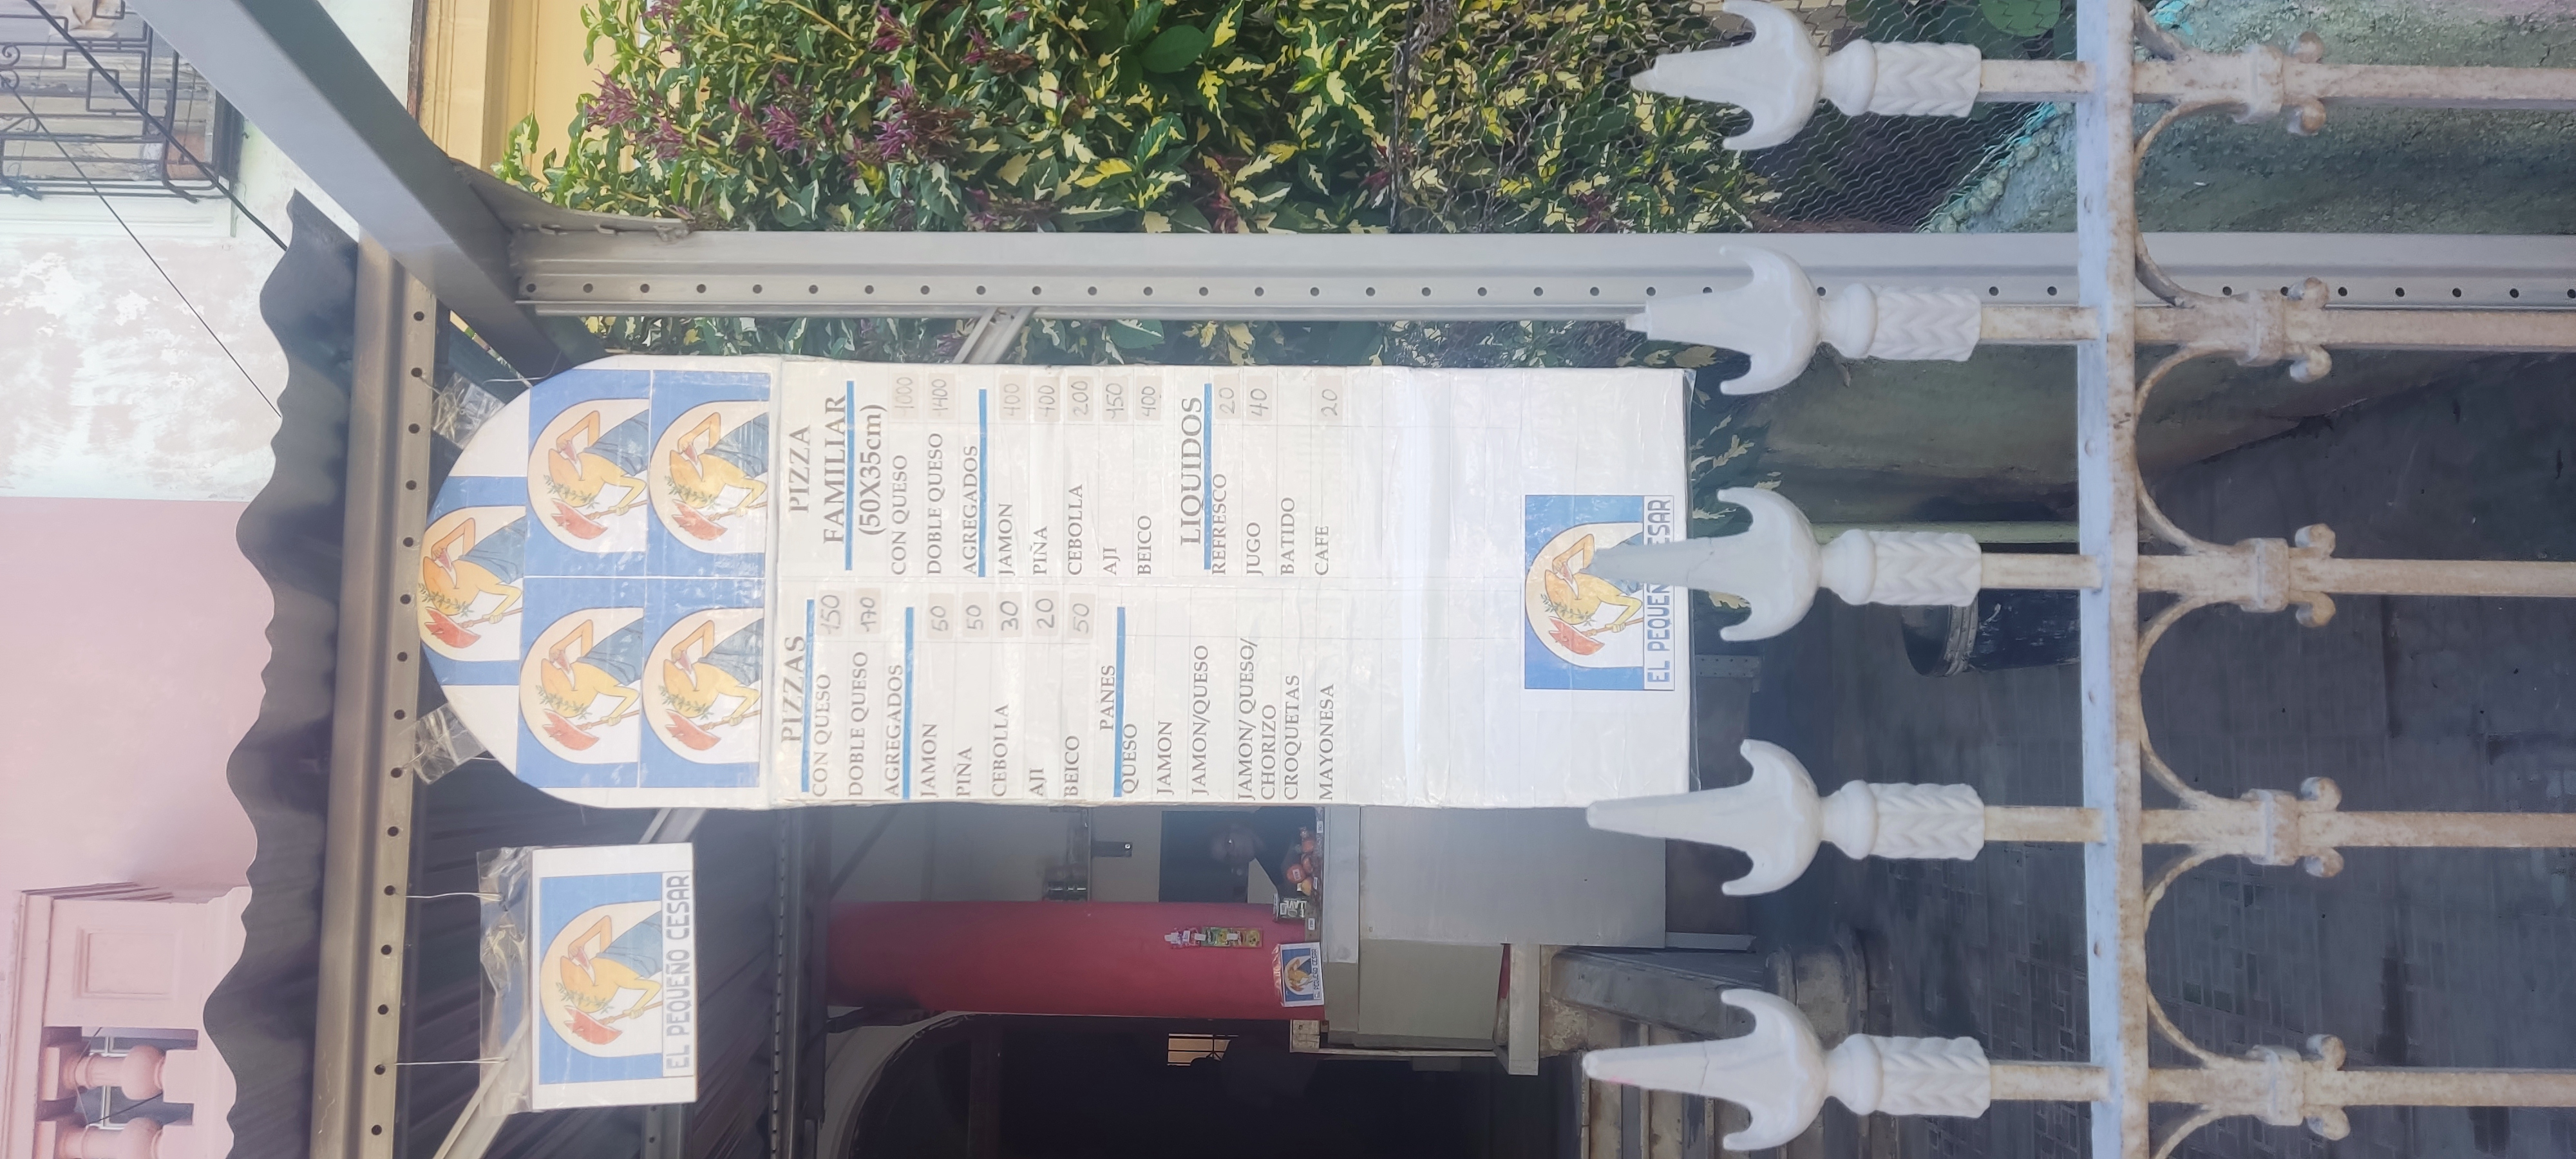 EL PEQUEÑO CESAR
PIZZAS
CON QUESO 150
DOBLE QUESO 170
AGREGADOS
JAMON 50
PIÑA 50
CEBOLLA 30
AJI 20
BEICO 50
PANES
QUESO
JAMON
JAMON/QUESO
JAMON/ QUESO/
CHORIZO
CROQUETAS
MAYONESA
PIZZA
FAMILIAR
(50X35cm)
CON QUESO 1000
DOBLE QUESO 1400
AGREGADOS
JAMON 400
PIÑA 400
CEBOLLA 200
AJI 150
BEICO 400
LIQUIDOS
REFRESCO 20
JUGO 40
BATIDO
CAFE 20
EL PEQUEÑ ESAR